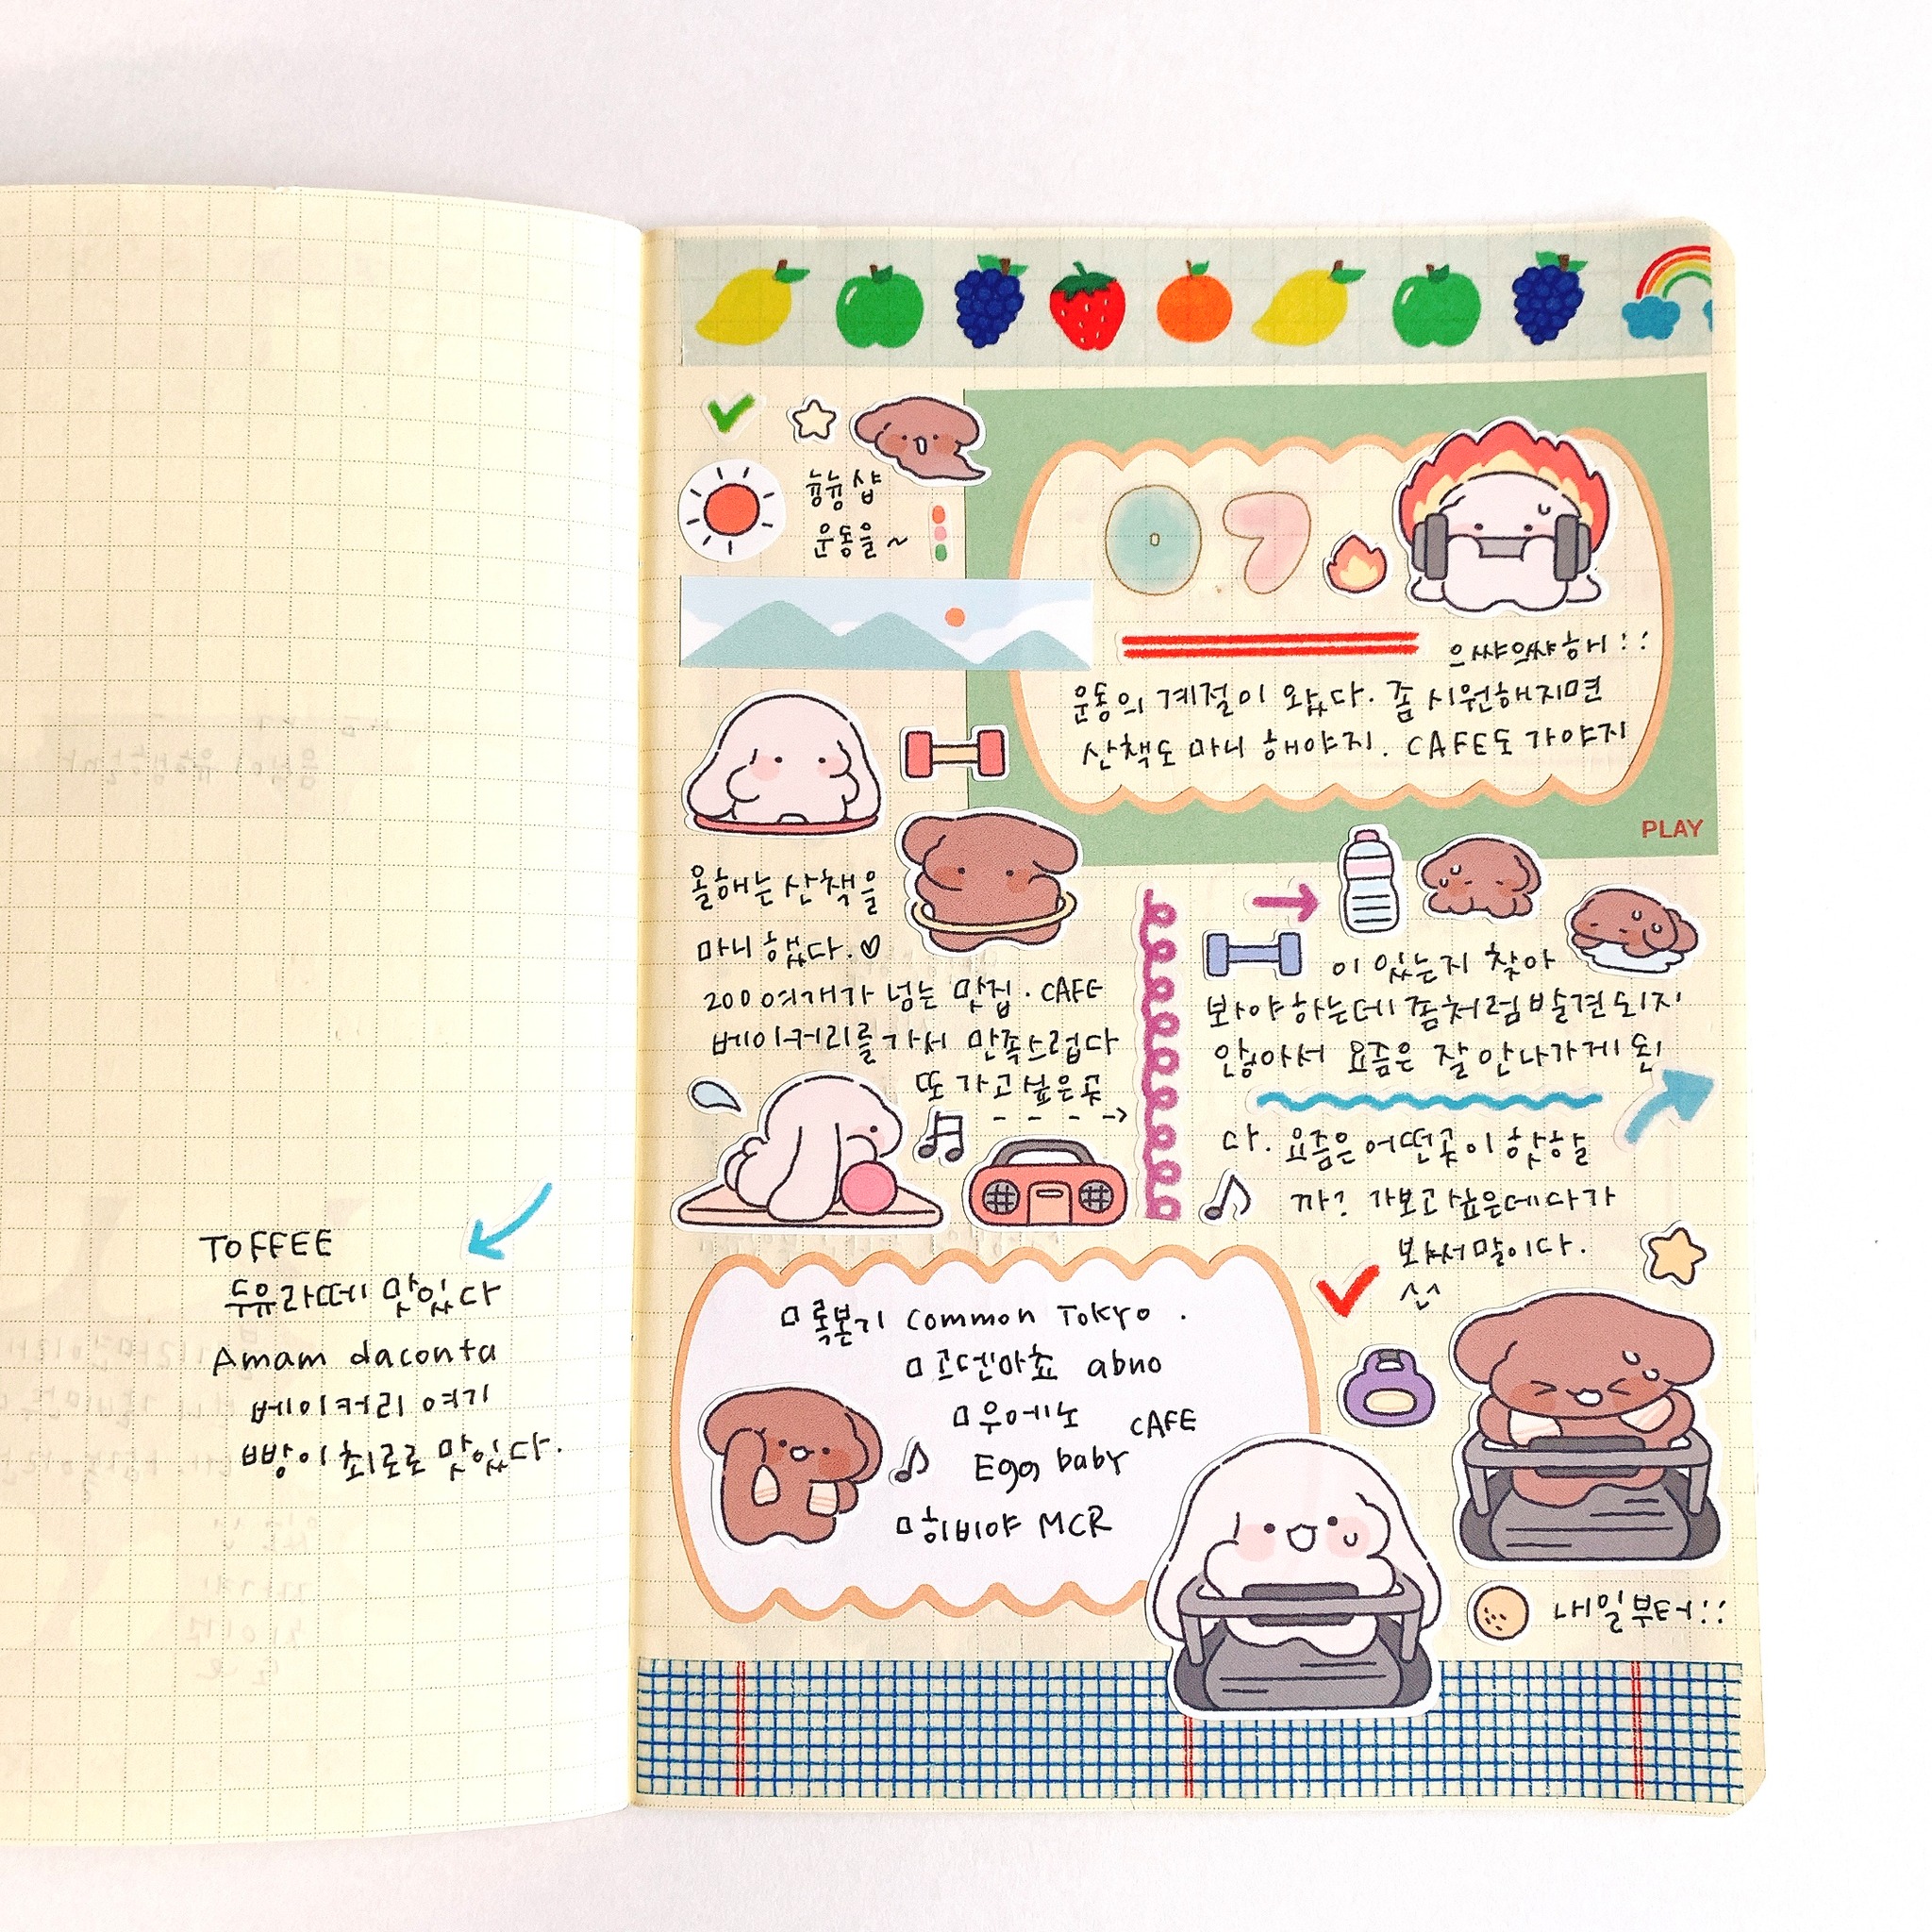 TOFFEE
두유라떼 맛있다
Amam daconta
베이커리 여기
빵이 최고로 맛있다.
흉흉 샵
운동을 ~
07.
으쌰으쌰해 ::
운동의 계절이 왔다. 좀 시원해지면
산책도 마니 해야지. CAFE도 가야지
PLAY
올해는 산책을
마니 했다. ♡
200여개가 넘는 맛집 · CAFE
베이커리를 가서 만족스럽다
또 가고 싶은 곳
이 있는지 찾아
봐야하는데 좀처럼 발견되지
않아서 요즘은 잘 안나가게 된
다. 요즘은 어떤곳이 핫할
까? 가보고싶은데 다가
봐서 말이다.
ㅁ 록본기 Common Tokyo .
ㅁ 코덴마쵸 abno
ㅁ 우에노 CAFE
Egg baby
ㅁ 히비야 MCR
내일부터 ::